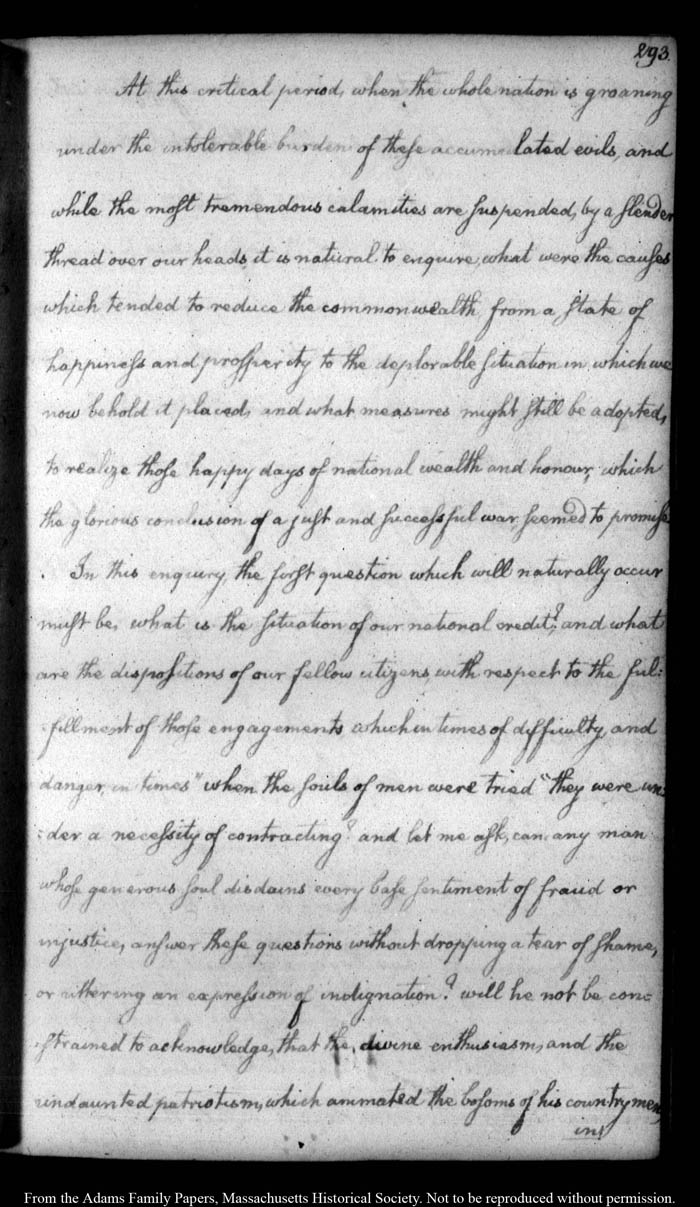 293.
At this critical period, when the whole nation is groaning
under the intolerable burden of these accumulated evils, and
while the most tremendous calamities are suspended, by a slender
thread over our heads, it is natural to enquire, what were the causes
which tended to reduce the commonwealth, from a state of
happiness and prosperity to the deplorable situation in which we
now behold it placed, and what measures might still be adopted,
to realize those happy days of national wealth and honour, which
the glorious conclusion of a just and successful war seemed to promise
. In this enquiry, the first question which will naturally occur
must be, what is the situation of our national credit? and what
are the dispositions of our fellow citizens, with respect to the ful:
:fillment of those engagements which in times of difficulty and
danger, in times "when the souls of men were tried" they were un:
:der a necessity of contracting? and let me ask, can any man
whose generous soul disdains every base sentiment of fraud or
injustice, answer these questions without dropping a tear of shame,
or uttering an expression of indignation? will he not be con:
:strained to acknowledge, that the divine enthusiasm, and the
undaunted patriotism, which animated the bosoms of his countrymen,
in
From the Adams Family Papers, Massachusetts Historical Society. Not to be reproduced without permission.